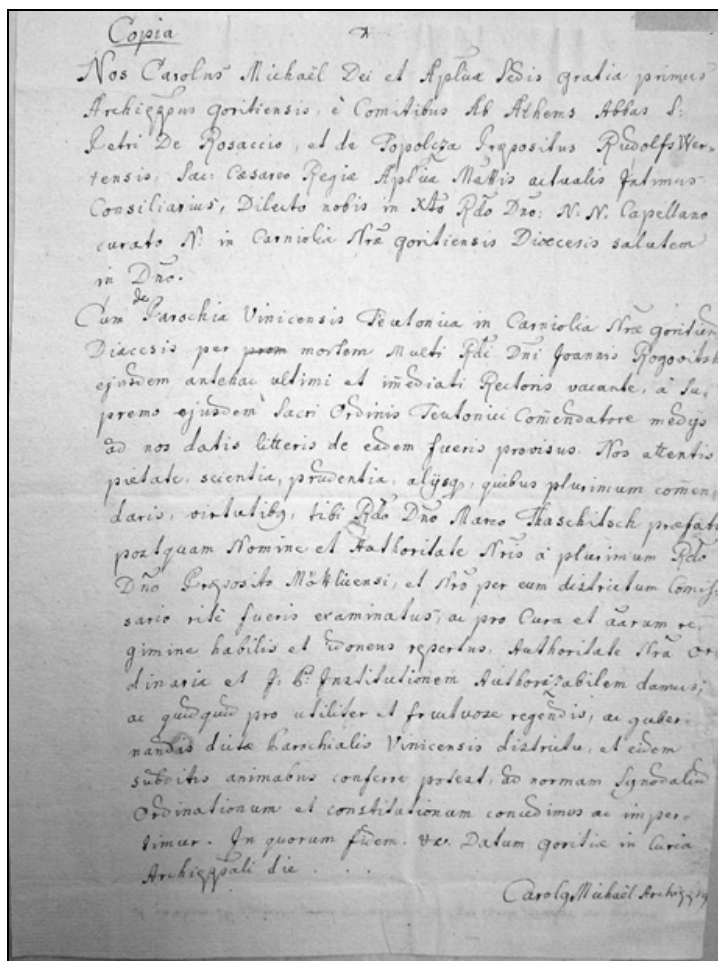 Copia
Nos Carolus Michaël Dei et Aplīcæ Sedis gratia primus
Archieppus goritiensis, è Comitibus Ab Athems Abbas S:
Petri De Rosaccio, et de Topolcza Præpositus Rudolfs Wer-
tensis, Sac: Cæsareo Regiæ Aplīcæ Mattis actualis Intimus
Consiliarius, Dilecto nobis in Xto Rdo Dno: N: N. Capellano
curato N: in Carniolia Nræ goritiensis Dioecesis salutem
in Dno.
Cum de Parochia Vinicensis Teutonica in Carniolia Nræ goritien
Dioecesis per mortem Multi Rdi Dni Joannis Rogovitsh
ejusdem antehac ultimi et imediati Rectoris vacante, à Su,
premo ejusdem Sacri Ordinis Teutonici Comendatore medijs
ad nos datis litteris de eadem fueris provisus. Nos attentis
pietate, scientia, prudentia, alijsq, quibus plurimum comen,
daris, virtutibq, tibi Rdo Dno Marco Thaschitsch præfato
postquam Nomine et Authoritate Nris à plurimum Rdo
Dno Præposito Möttlicensi, et Nro per eum districtum Comis,
sario ritè fueris examinatus, ac pro Cura et aarum re,
gimine habilis et idoneus repertus, Authoritate Nra or
dinaria et Institutionem Authorizabilem damus,
ac quidquid pro utiliter et fructuose regendis, ac guber
nandis dictæ Parochialis Vinicensis districtu, et eidem
subditis animabus conferre potest, ad normam Synodaliū
Ordinationum et constitutionum concedimus ac imper-
timur. In quorum fidem. Datum goritiæ in Curia
Archieppali die . . .
Carolq Michaël Archieppq